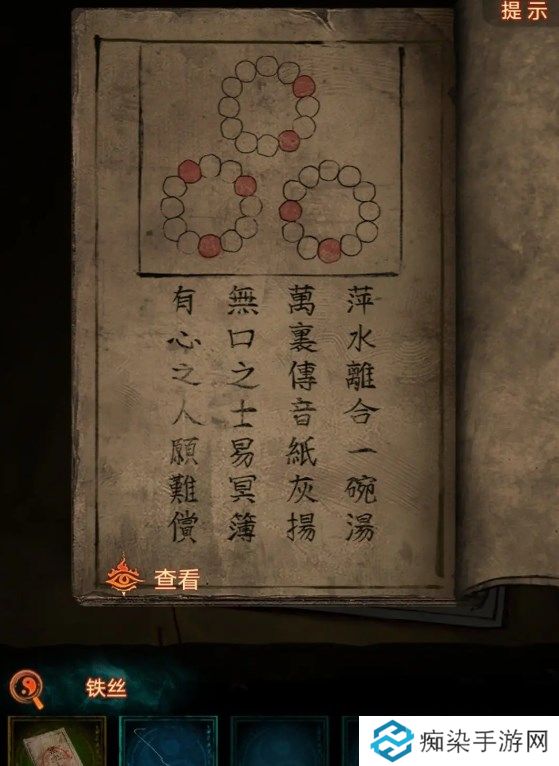 提示
萍水離合一碗湯
萬裏傳音紙灰揚
無口之士易冥簿
有心之人願難償
查看
铁丝
痴染手游网